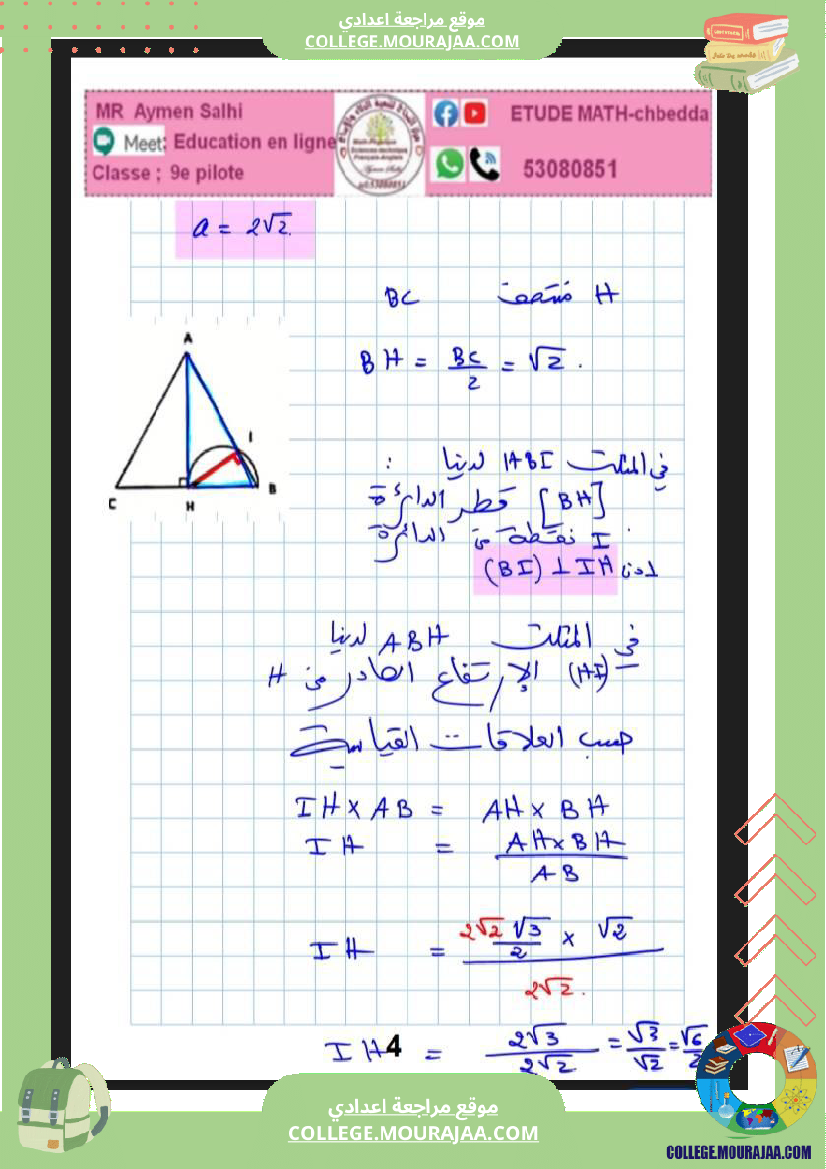 موقع مراجعة اعدادي
COLLEGE.MOURAJAA.COM
MR Aymen Salhi
Meet: Education en ligne
Classe ; 9e pilote
ETUDE MATH-chbedda
53080851
a = 2√2.
H منتصف BC
BH = BC/2 = √2 .
A
I
C
H
B
في المثلث HBI لدينا :
[BH] قطر الدائرة
I نقطة من الدائرة
اذن IH ⊥ (BI)
في المثلث ABH لدينا
(HI) الإرتفاع الصادر من H
حسب العلاقات القياسية
IH × AB = AH × BH
IH = AH × BH / AB
IH = 2√2 √3/2 × √2 / 2√2.
IH = 2√3 / 2√2 = √3/√2 = √6/2
4
موقع مراجعة اعدادي
COLLEGE.MOURAJAA.COM
COLLEGE.MOURAJAA.COM